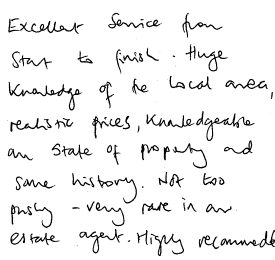 Excellent Service from
Start to finish. Huge
Knowledge of the local area,
realistic prices, Knowledgeable
on State of property and
some history. Not too
pushy - very rare in an
estate agent. Highly recommended